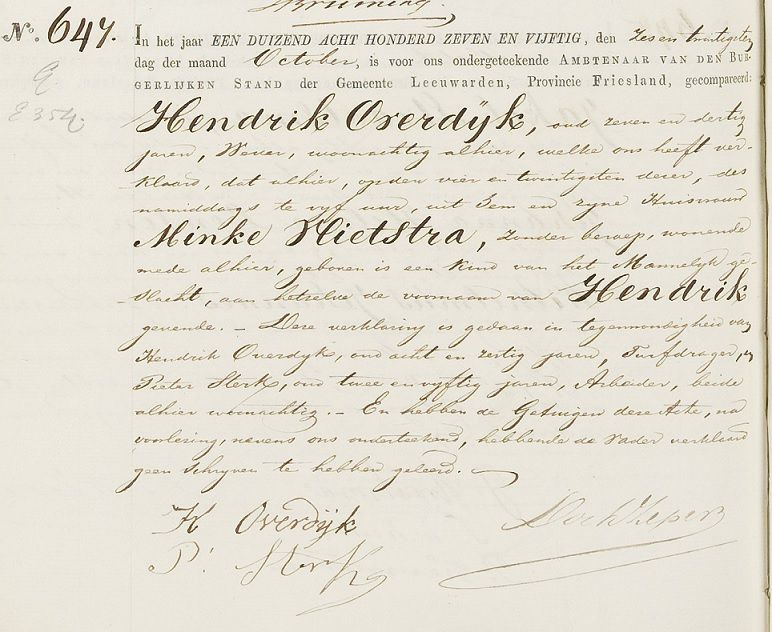 Bruining.
No. 647.
In het jaar EEN DUIZEND ACHT HONDERD ZEVEN EN VIJFTIG, den zes en twintigsten
dag der maand October, is voor ons ondergeteekende AMBTENAAR VAN DEN BUR-
GERLIJKEN STAND der Gemeente Leeuwarden, Provincie Friesland, gecompareerd:
E 354.
Hendrik Overdijk, oud zeven en dertig
jaren, Wever, woonachtig alhier, welke ons heeft ver-
klaard, dat alhier, op den vier en twintigsten dezer, des
namiddags te vyf uur, uit hem en zyne Huisvrouw
Minke Nietstra, zonder beroep, wonende
mede alhier, geboren is een kind van het Mannelyk ge-
slacht, aan hetzelve de voornaam van Hendrik
gevende. - Deze verklaring is gedaan in tegenwoordigheid van
Hendrik Overdyk, oud acht en zestig jaren, Turfdrager, en
Pieter Sterk, oud twee en vyftig jaren, Arbeider, beide
alhier woonachtig. - En hebben de Getuigen deze Acte, na
voorlezing, nevens ons onderteekend, hebbende de Vader verklaard
geen schryven te hebben geleerd.
H Overdijk
P. Sterk